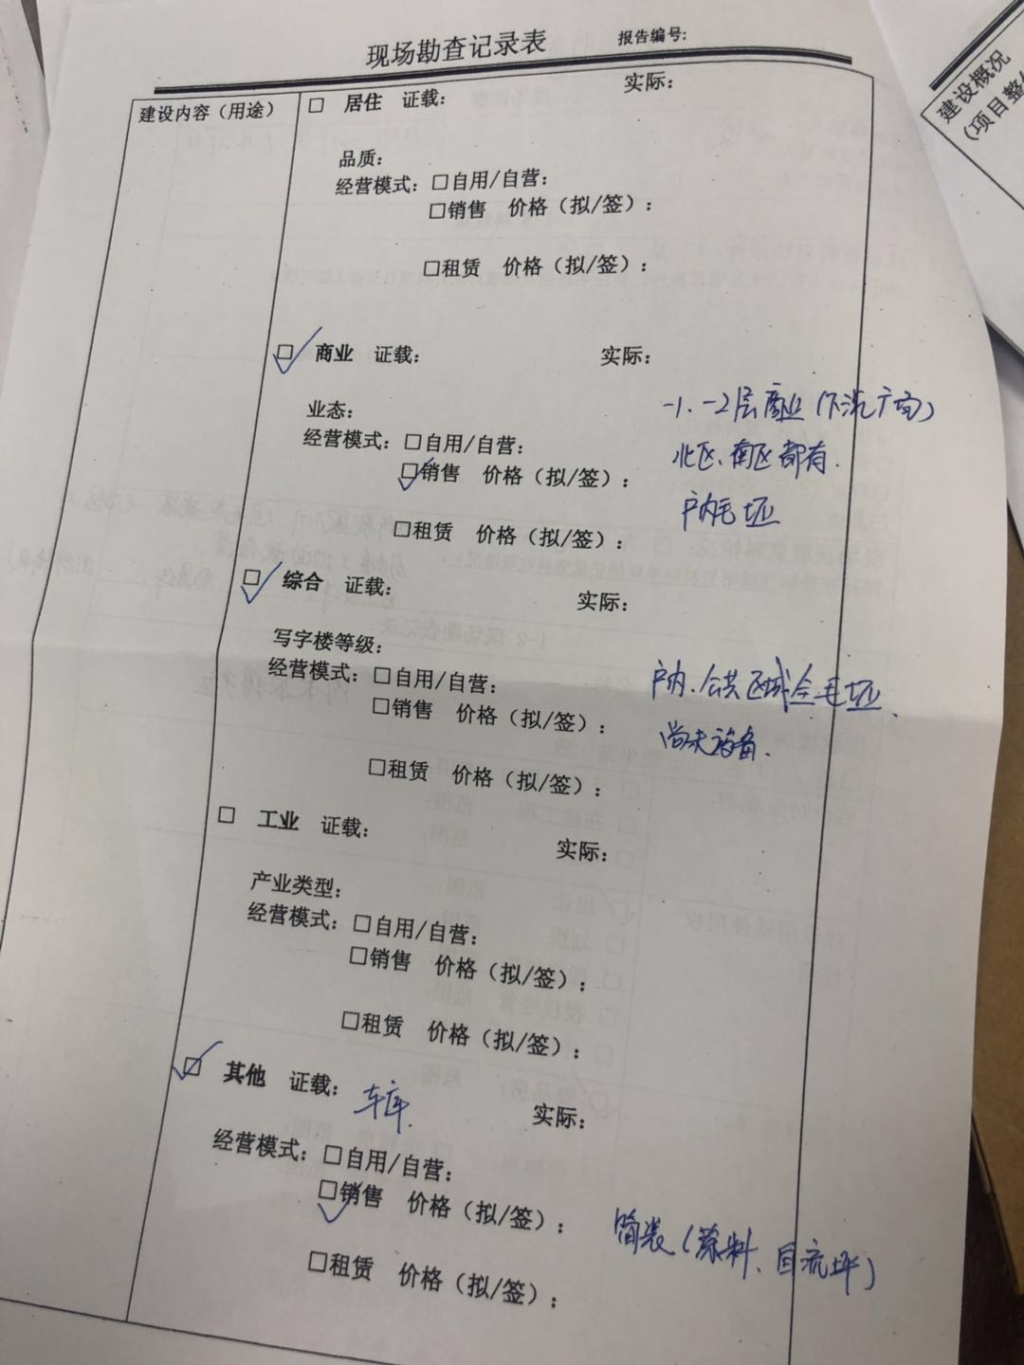 现场勘查记录表 报告编号:
建设内容（用途）
☐ 居住 证载: 实际:
品质:
经营模式: ☐自用/自营:
☐销售 价格（拟/签）:
☐租赁 价格（拟/签）:
☑ 商业 证载: 实际:
业态: -1、-2层商业（下沉广场）
经营模式: ☐自用/自营: 北区、南区都有.
☑销售 价格（拟/签）:
户内毛坯
☐租赁 价格（拟/签）:
☑ 综合 证载: 实际:
写字楼等级:
经营模式: ☐自用/自营: 户内、公共区域全毛坯、
☐销售 价格（拟/签）: 尚未
☐租赁 价格（拟/签）:
☐ 工业 证载: 实际:
产业类型:
经营模式: ☐自用/自营:
☐销售 价格（拟/签）:
☐租赁 价格（拟/签）:
☑ 其他 证载: 车库 实际:
经营模式: ☐自用/自营:
☑销售 价格（拟/签）: 简装（涂料、自流坪）
☐租赁 价格（拟/签）:
建设概况
（项目整